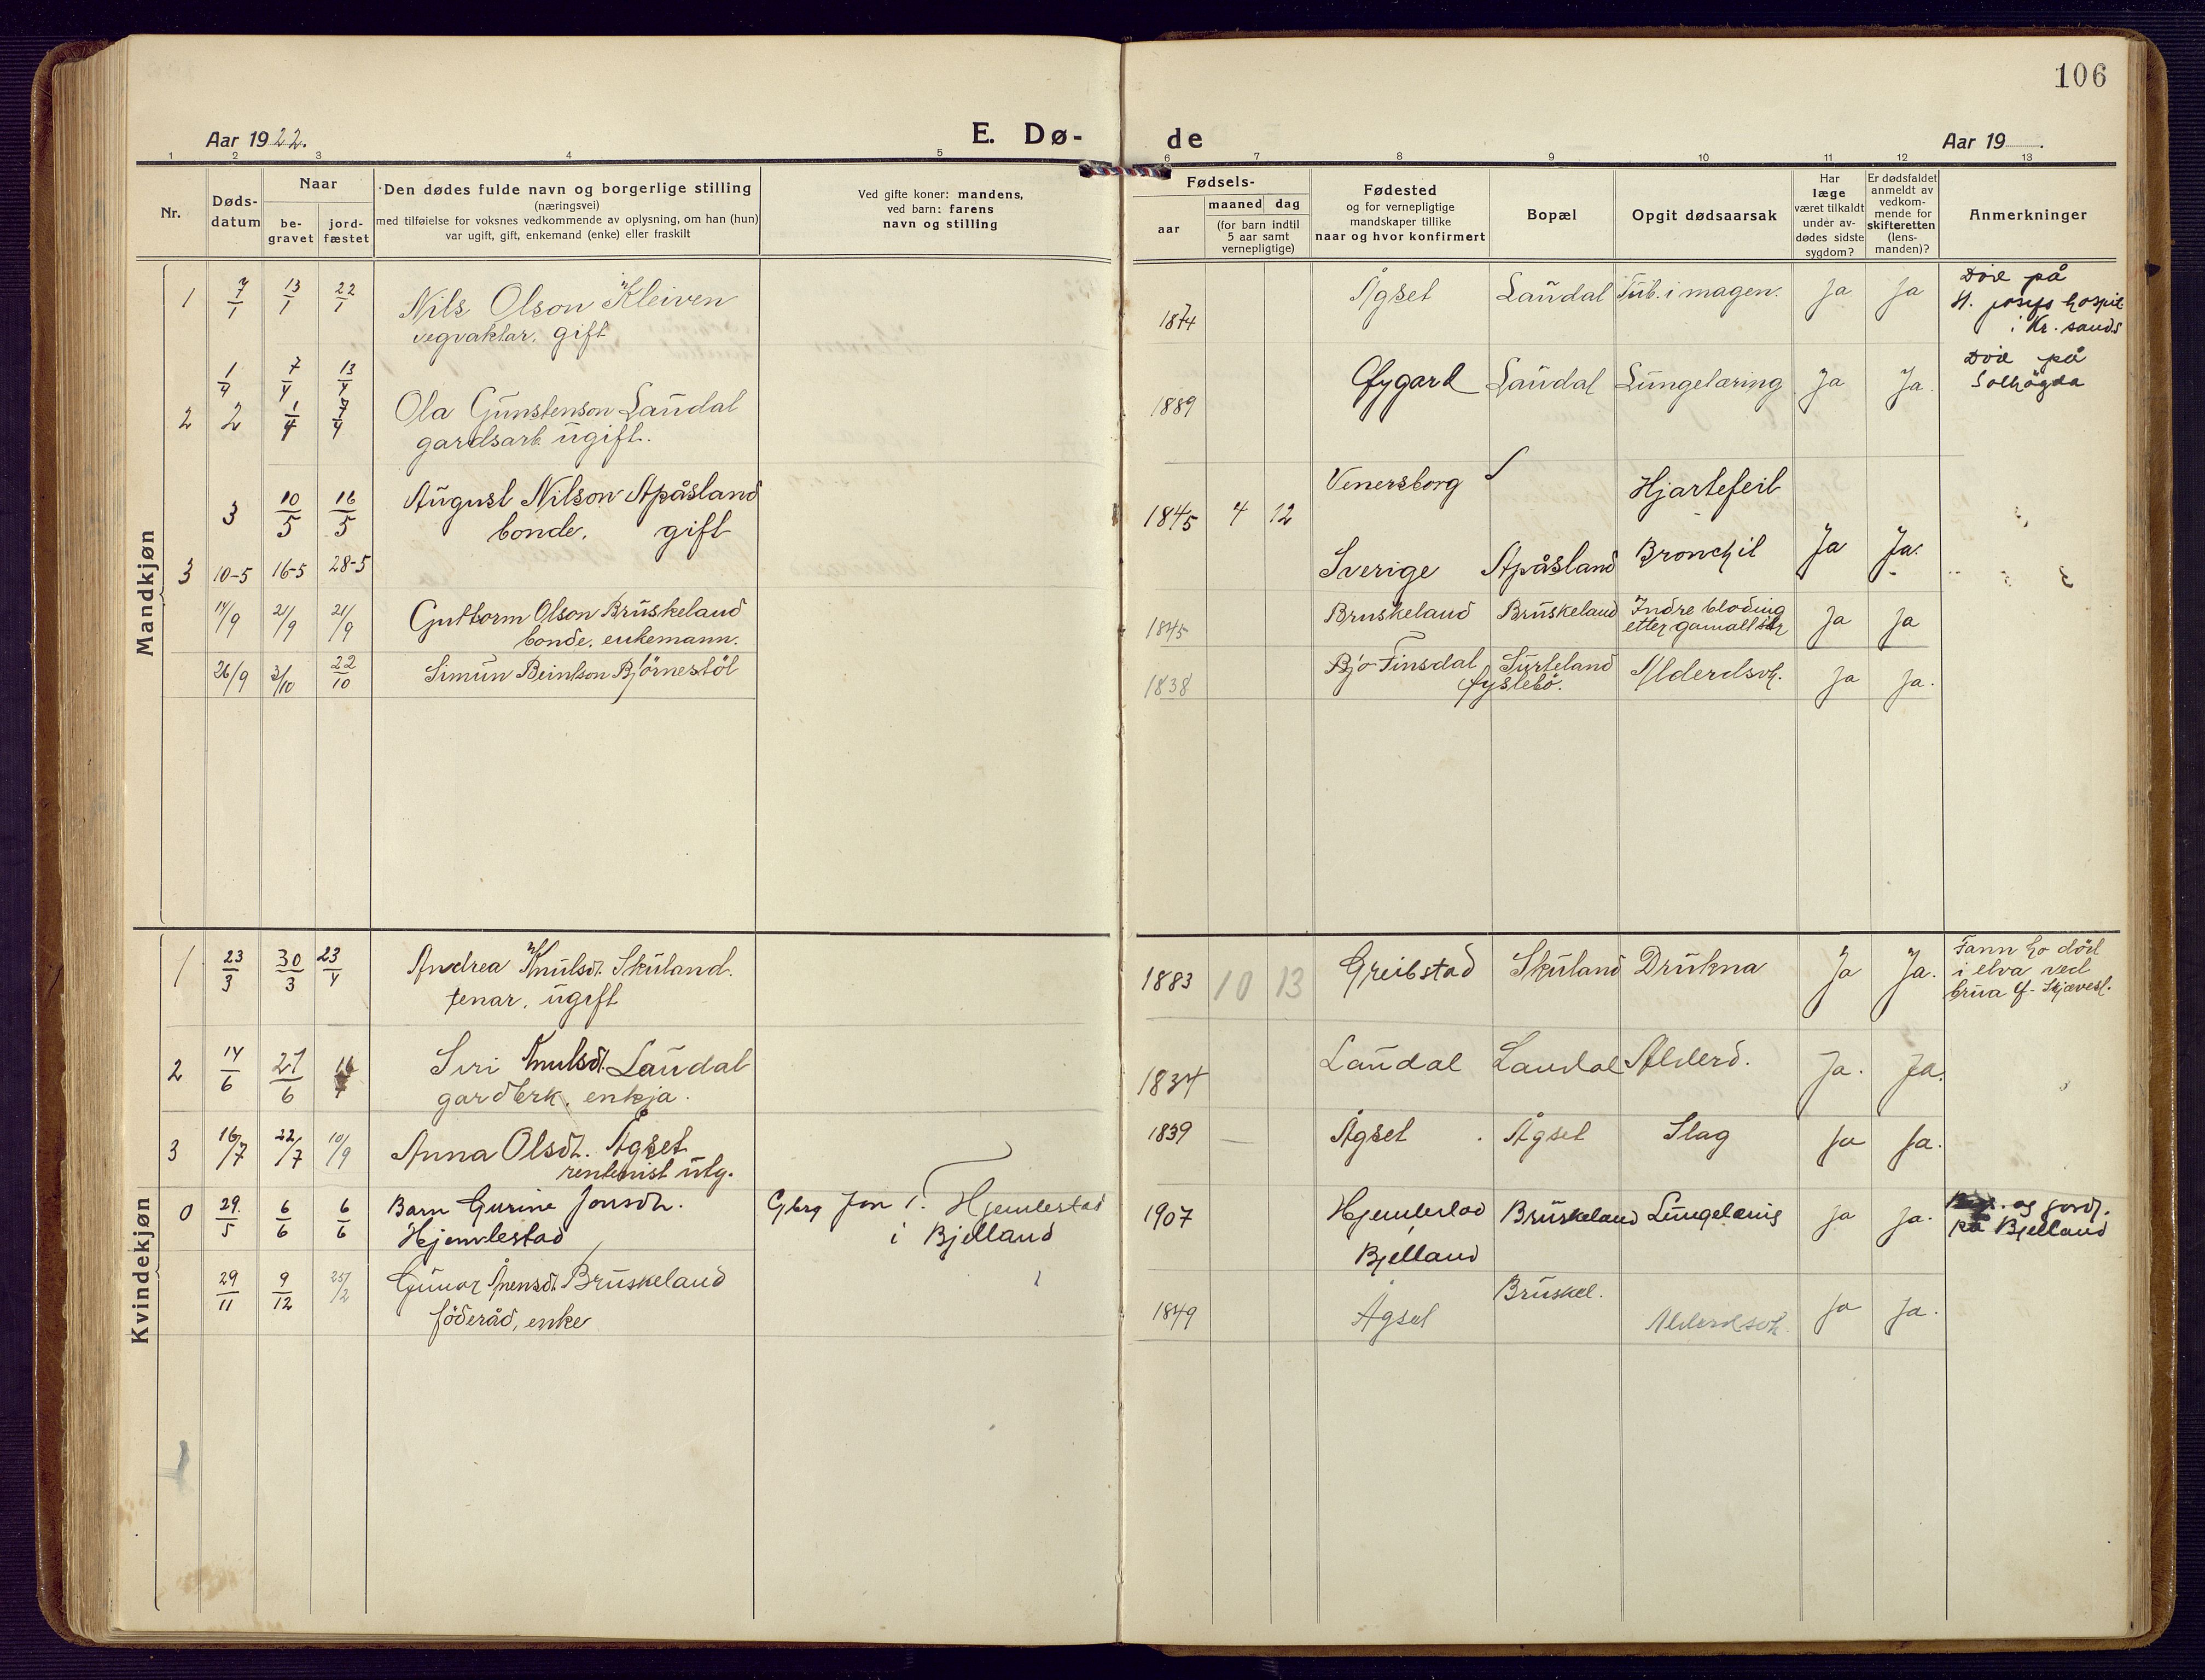 106
Aar 1922.
E. Dø-
de
Aar 19
1 2 3 4 5 6 7 8 9 10 11 12 13
Nr.
Døds-
datum
Naar
be-
gravet
jord-
fæstet
Den dødes fulde navn og borgerlige stilling
(næringsvei)
med tilføielse for voksnes vedkommende av oplysning, om han (hun)
var ugift, gift, enkemand (enke) eller fraskilt
Ved gifte koner: mandens,
ved barn: farens
navn og stilling
Fødsels-
aar
maaned dag
(for barn indtil
5 aar samt
vernepligtige)
Fødested
og for vernepligtige
mandskaper tillike
naar og hvor konfirmert
Bopæl
Opgit dødsaarsak
Har
læge
været tilkaldt
under av-
dødes sidste
sygdom?
Er dødsfaldet
anmeldt av
vedkom-
mende for
skifteretten
(lens-
manden)?
Anmerkninger
Mandkjøn
1 7/1 13/1 22/1 Nils Olson Kleiven
vegvaktar, gift
1874 Ågset Laudal Tub. i magen. Ja Ja
Döde på
St. josefs hospit
i Kr. sands
1/4 7/4 13/4
2 2 1/4 7/4 Ola Gunstenson Laudal
gardsarb. ugift.
1889 Øygard Laudal Lungelæring Ja Ja.
Döde på
Solhögda
3 10/5 16/5 August Nilson Apåsland
bonde, gift
3 10-5 16-5 28-5
1845 4 12 Venersborg
Sverige Apåsland
Hjartefeil
Bronchit Ja Ja.
17/9 21/9 21/9 Guttorm Olson Bruskeland
bonde, enkemann.
1845 Bruskeland Bruskeland Indre bloding
etter gamalt sår Ja Ja
26/9 3/10 22/10 Simun Beintson Björnestöl
1838 Finsdal Surteland
Øyslebö. Alderdsvh. Ja Ja.
Kvindekjøn
1 23/3 30/3 23/4 Andrea Knutsdt. Skuland.
tenar, ugift
1883 10 13 Greibstad Skuland Drukna Ja Ja.
Fann ho död
i elva ved
brua
2 14/6 21/6 16 Siri Knutsdt. Laudal
gardbrk. enkja.
1834 Laudal Laudal Alderd. Ja. Ja.
3 16/7 22/7 10/9 Anna Olsdt. Ågset
rentenist utg.
1839 — Ågset Ågset Slag Ja Ja.
0 29/5 6/6 6/6 Barn Gurine Jonsdtr.
Hjemlestad
Gbrg Jon T. Hjemlestad
i Bjelland
1907 Hjemlestad
i Bjelland
Bruskeland Ja Ja.
og jordf.
på Bjelland
29/11 9/12 25/2 Gunor Ånensdt. Bruskeland
föderåd, enke
1849 Ågset Bruskel. Alderdsvh. Ja Ja.